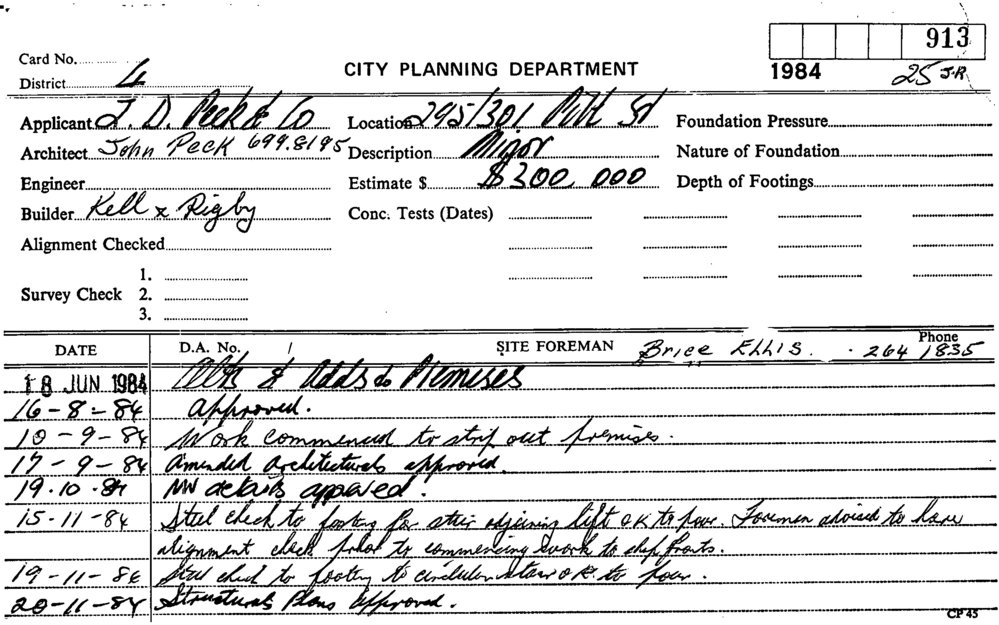 913
Card No.
1984
25 J.R
District 4
CITY PLANNING DEPARTMENT
Applicant J. D. Peck & Co
Location 295/301 Pitt St
Foundation Pressure
Architect John Peck 699.8195
Description Minor
Nature of Foundation
Engineer
Estimate $ $300,000
Depth of Footings
Builder Kell & Rigby
Conc. Tests (Dates)
Alignment Checked
Survey Check
1.
2.
3.
DATE
D.A. No. /
SITE FOREMAN Brice ELLIS.
Phone
264 1835
18 JUN 1984 Alts & Adds to Premises
16-8-84 Approved.
10-9-84 Work commenced to strip out premises.
17-9-84 Amended Architecturals approved.
19.10.84 MV details approved.
15-11-84 Steel check to footing for stair adjoining lift OK to pour. Foreman advised to have
alignment check prior to commencing work to shop fronts.
19-11-84 Steel check to footing to circular stair OK to pour.
20-11-84 Structural Plans Approved.
CP 45